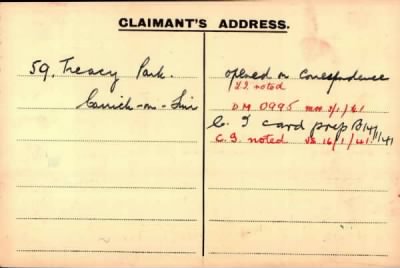 CLAIMANT'S ADDRESS.
59, Treacy Park.
Carrick-on-Suir
opened on Correspondence
I.I. noted
DM 0995 3/1/41
C. I card prep B 14/1/41
C. I. noted 16/1/41.